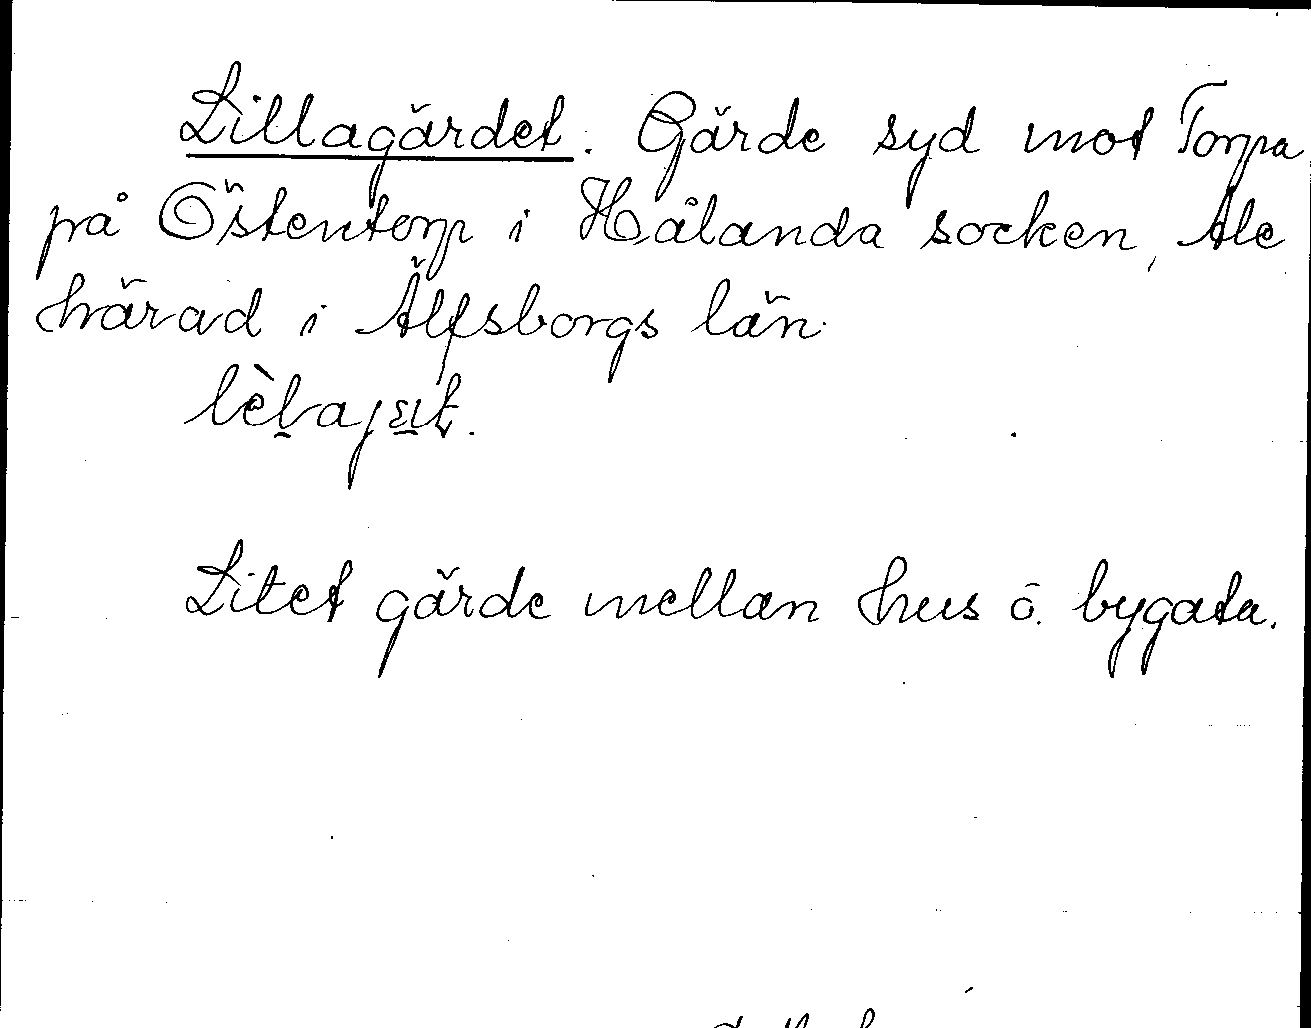 Lillagärdet. Gärde syd mot Torpa
på Östentorp i Hålanda socken, Ale
härad i Älfsborgs län.
Litet gärde mellan hus o. bygata.